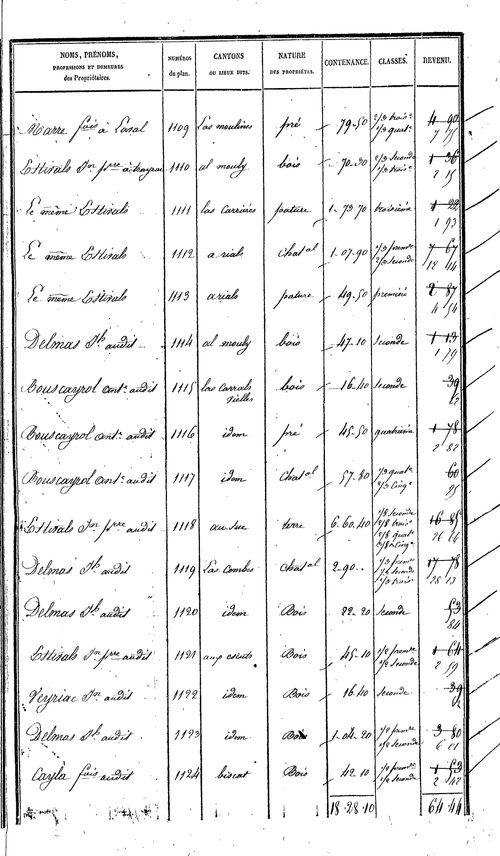 NOMS, PRÉNOMS, PROFESSIONS ET DEMEURES des Propriétaires. NUMÉROS du plan. CANTONS OU LIEUX DITS. NATURE DES PROPRIÉTÉS. CONTENANCE. CLASSES. REVENU.
Marre fois à Laval 1109 Las moulines pré 79-50 2/3 trois.e 1/3 quat.e 4 90
7
Estivals Jn. pre. à 1110 al mouly bois 70-30 2/3 seconde 1/3 trois.e 1 36
2 15
Le même Estivals 1111 las Carrières pature 1-73-70 troisième 1 22
1 93
Le même Estivals 1112 a rials Chat.al 1-07-90 1/3 premre 2/3 seconde 7 67
18 14
Le même Estivals 1113 a rials pature 49-50 première 2 87
4 54
Delmas Jh. audit 1114 al mouly bois 47-10 seconde 1 13
1 79
Bouscayrol ant.e audit 1115 las Carrals vielles bois 16-40 seconde 39
62
Bouscayrol ant.e audit 1116 idem pré 45-50 quatrième 1 78
2 82
Bouscayrol ant.e audit 1117 idem Chat.al 57-80 1/3 quat.e 2/3 cinq.e 60
95
Estivals Jn. pre audit 1118 au suc terre 6-60-40 1/8 seconde 2/8 trois.e 16 85
26 66
Delmas Jh. audit 1119 Las Combes Chat.al 2-90-" 1/3 premre 1/3 seconde 1/3 trois.e 17 78
28 13
Delmas Jh. audit 1120 idem Bois 22-20 seconde 53
84
Estivals Jn. pre audit 1121 Bois 45-10 1/2 premre 1/2 seconde 1 64
2 59
Veyriac Jn. audit 1122 idem Bois 16-40 seconde 39
62
Delmas Jh. audit 1123 idem Bois 1-04-20 1/2 premre 1/2 seconde 3 80
6 01
Cayla fois audit 1124 biscat Bois 42-10 1/2 premre 1/2 seconde 1 53
2 42
18-28-10 64-44